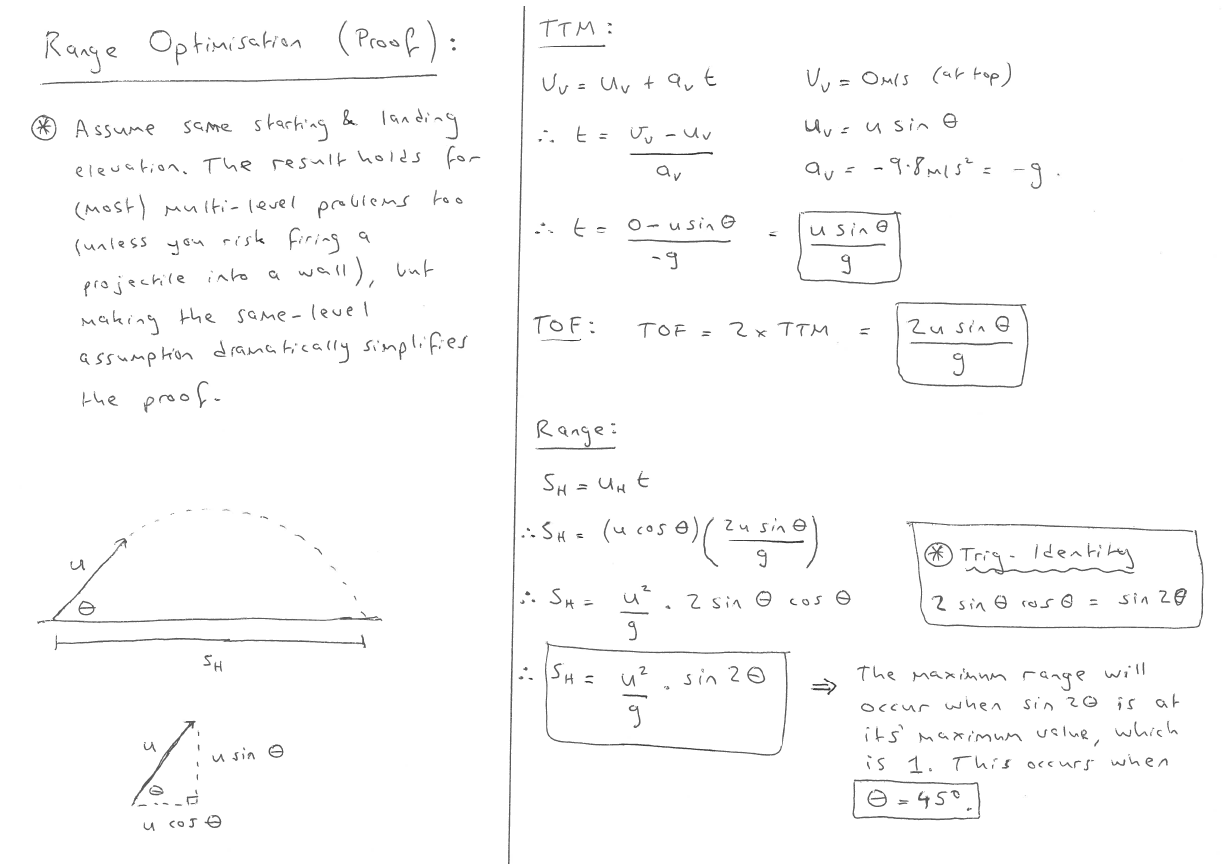 Range Optimisation (Proof):
⊛ Assume same starting & landing
elevation. The result holds for
(most) multi-level problems too
(unless you risk firing a
projectile into a wall), but
making the same-level
assumption dramatically simplifies
the proof.
u
θ
S_H
u
u sin θ
θ
u cos θ
TTM:
V_v = u_v + a_v t
V_v = 0m/s (at top)
∴ t = (v_v - u_v)/a_v
u_v = u sin θ
a_v = -9.8m/s² = -g.
∴ t = (0 - u sin θ)/-g = u sin θ/g
TOF: TOF = 2 x TTM = 2u sin θ/g
Range:
S_H = u_H t
∴ S_H = (u cos θ)(2u sin θ/g)
∴ S_H = u²/g . 2 sin θ cos θ
⊛ Trig. Identity
2 sin θ cos θ = sin 2θ
∴ S_H = u²/g . sin 2θ
⇒ The maximum range will
occur when sin 2θ is at
its' maximum value, which
is 1. This occurs when
θ = 45°.